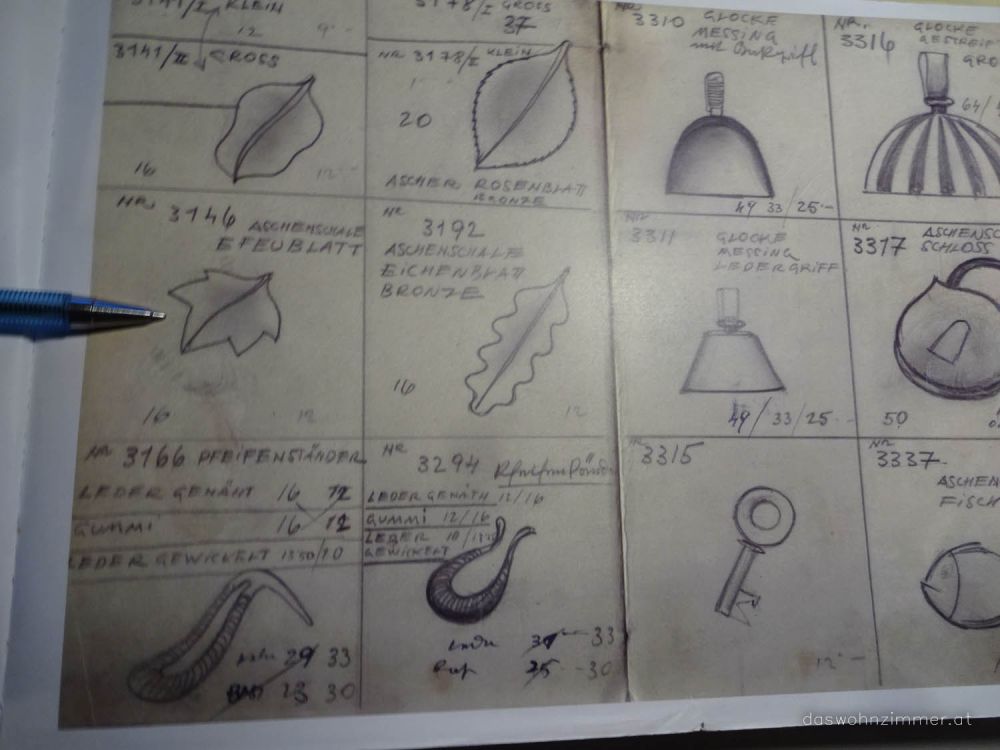 3141/I KLEIN
12
3141/II GROSS
16
12
3178/I GROSS
37
NR 3178/II KLEIN
20
ASCHER ROSENBLATT
BRONZE
NR. 3310 GLOCKE
MESSING
49 33/25.-
NR.
3316
GLOCKE
GESTREIF
GRO
64/
NR. 3146 ASCHENSCHALE
EFEUBLATT
16
12
NR
3192
ASCHENSCHALE
EICHENBLATT
BRONZE
16
12
NR
3311 GLOCKE
MESSING
LEDERGRIFF
49/33/25.-
NR
3317 ASCHENSC
SCHLOSS
50
NR 3166 PFEIFENSTÄNDER
LEDER GENÄHT 16 12
GUMMI 16 12
LEDER GEWICKELT 1350/10
29 33
23 30
NR
3294
LEDER GENÄTH 12/16
GUMMI 12/16
LEDER 10/
GEWICKELT
33
25 30
NR
3315
12.-
NR
3337.
ASCHEN
FISCH
daswohnzimmer.at